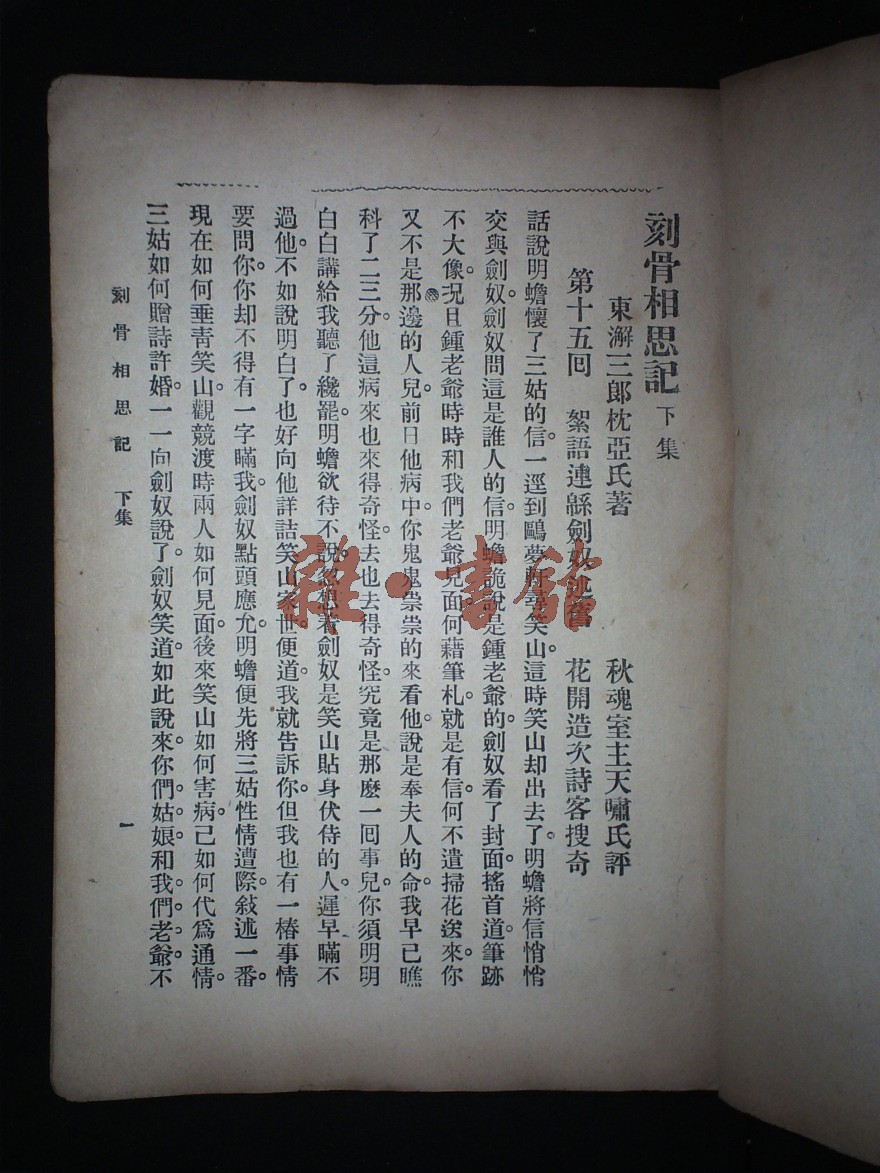 刻骨相思記 下集
東澥三郎枕亞氏著 秋魂室主天嘯氏評
第十五回 絮語連緜劍奴述舊 花開造次詩客搜奇
話說明蟾懷了三姑的信。一逕到鷗夢 笑山。這時笑山却出去了。明蟾將信悄悄
交與劍奴。劍奴問這是誰人的信。明蟾詭說是鍾老爺的。劍奴看了封面。搖首道。筆跡
不大像。况且鍾老爺時時和我們老爺見面。何藉筆札。就是有信。何不遣掃花送來。你
又不是那邊的人兒。前日他病中。你鬼鬼祟祟的來看他。說是奉夫人的命。我早已瞧
科了二三分。他這病來也來得奇怪。去也去得奇怪。究竟是那麽一回事兒。你須明明
白白講給我聽了纔罷。明蟾欲待不說。 想着劍奴是笑山貼身伏侍的人。遲早瞞不
過他。不如說明白了。也好向他詳詰笑山家世。便道。我就告訴你。但我也有一樁事情
要問你。你却不得有一字瞞我。劍奴點頭應允。明蟾便先將三姑性情遭際。敍述一番。
現在如何垂青笑山。觀競渡時兩人如何見面。後來笑山如何害病。己如何代爲通情。
三姑如何贈詩許婚。一一向劍奴說了。劍奴笑道。如此說來。你們姑娘和我們老爺。不
刻骨相思記 下集
一
雜·書館